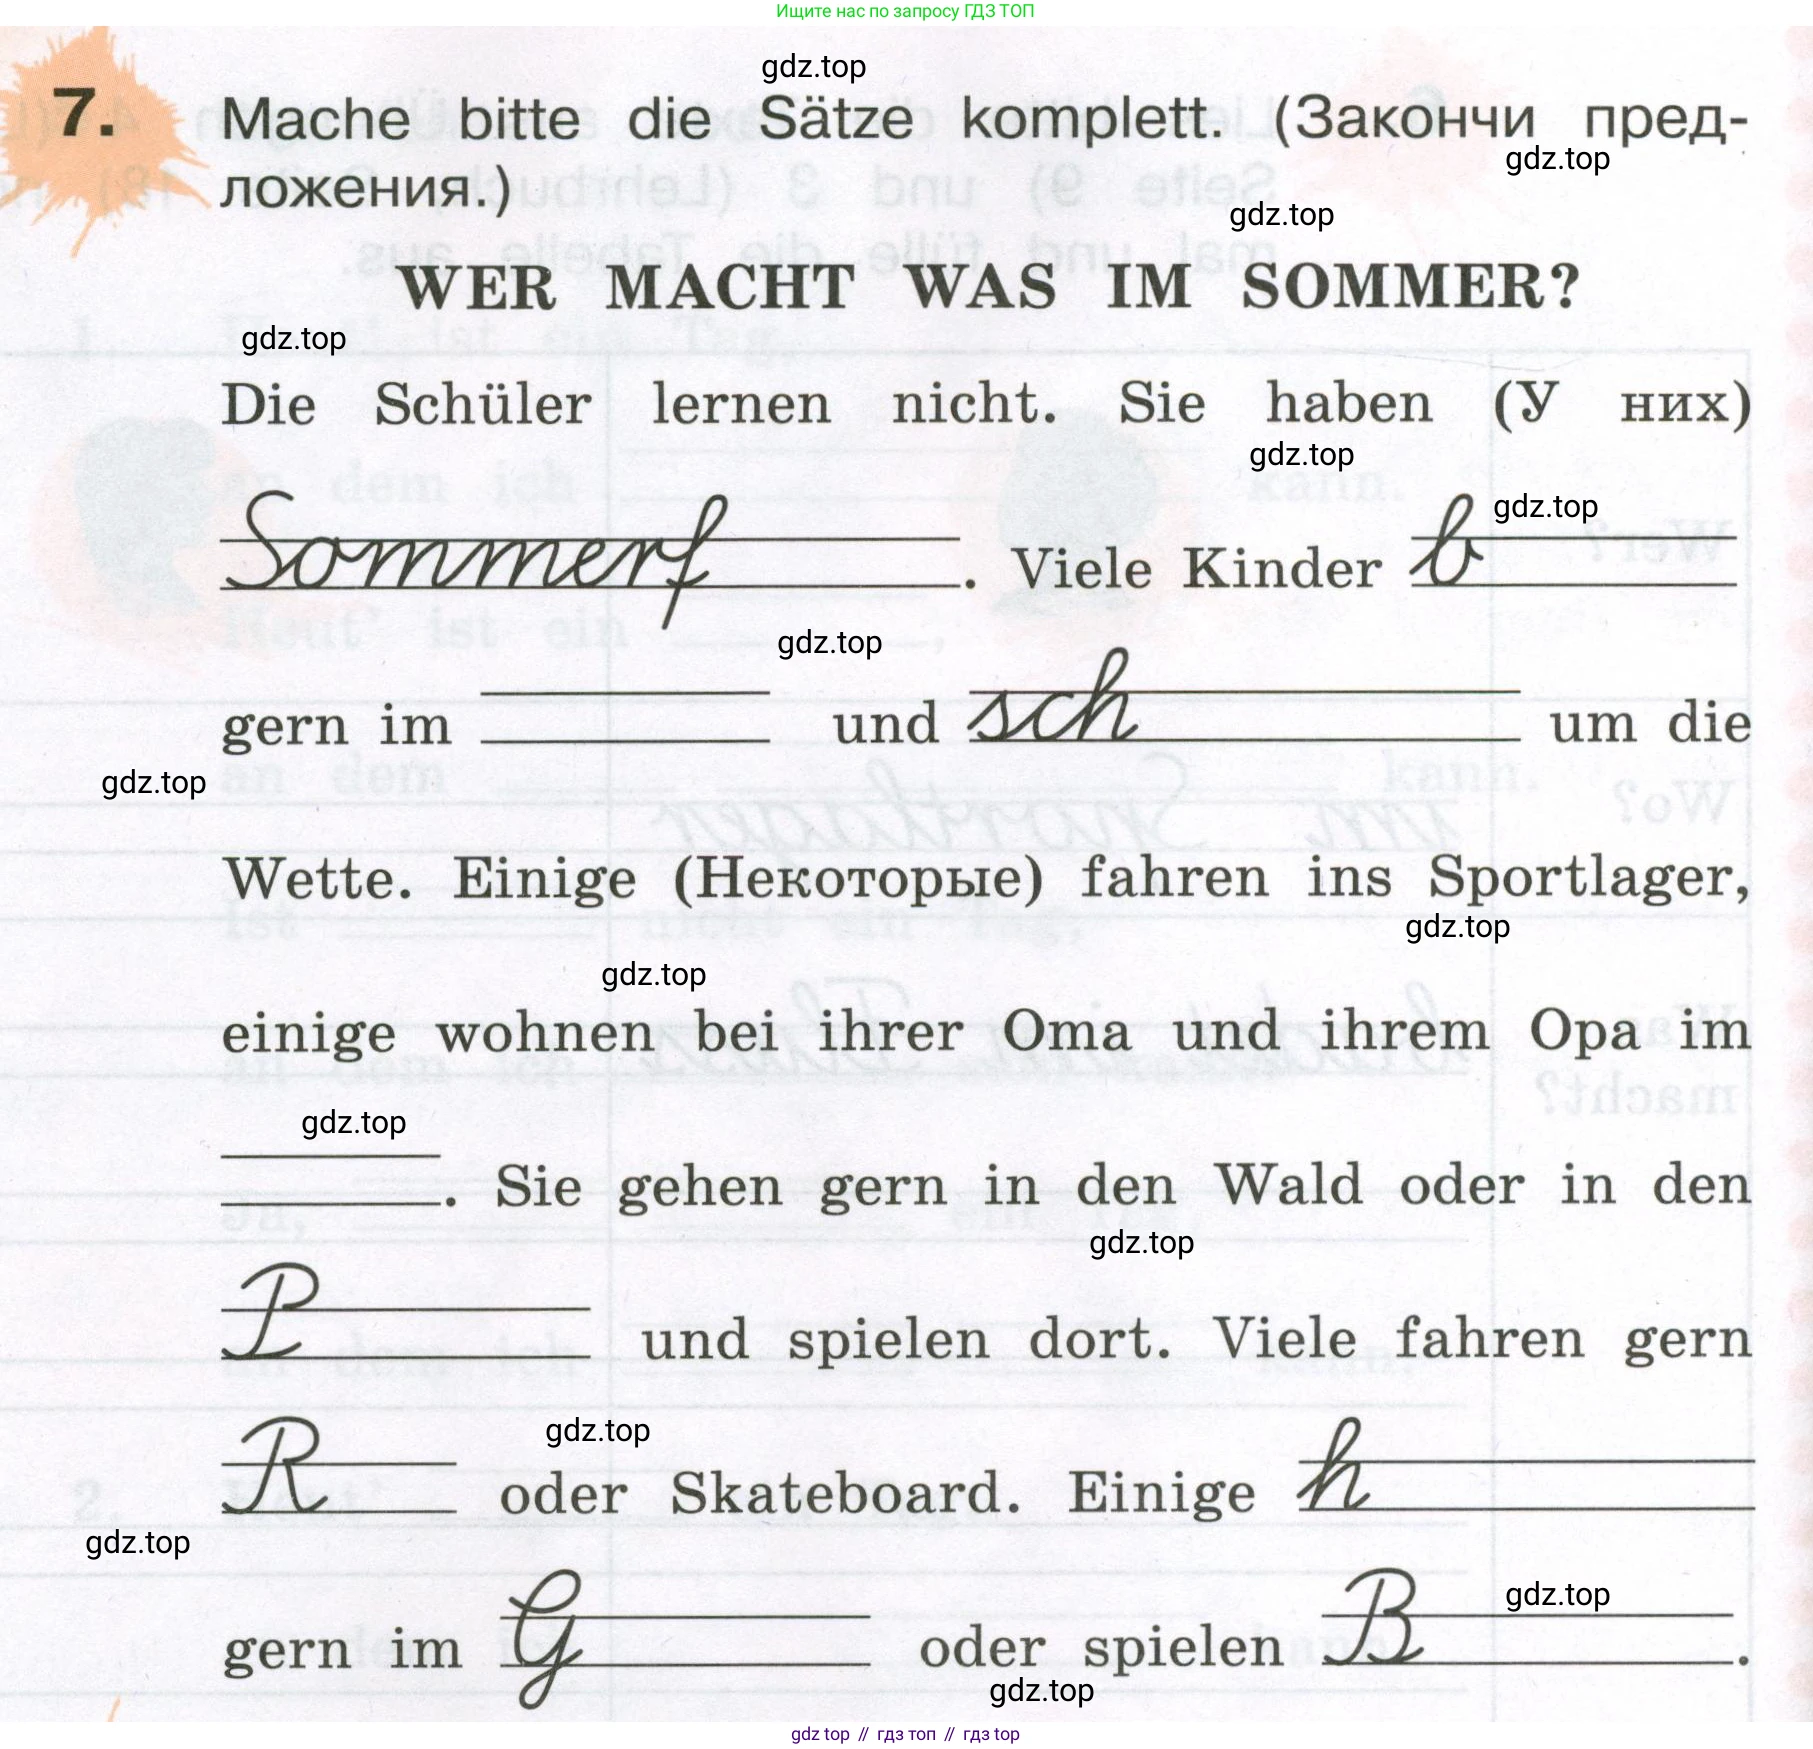 Ищите нас по запросу ГДЗ ТОП
gdz.top
7. Mache bitte die Sätze komplett. (Закончи пред-
gdz.top
ложения.)
gdz.top
WER MACHT WAS IM SOMMER?
gdz.top
Die Schüler lernen nicht. Sie haben (У них)
gdz.top
gdz.top
Sommerf. Viele Kinder b
gdz.top
gern im und sch um die
gdz.top
Wette. Einige (Некоторые) fahren ins Sportlager,
gdz.top
gdz.top
einige wohnen bei ihrer Oma und ihrem Opa im
gdz.top
. Sie gehen gern in den Wald oder in den
gdz.top
P und spielen dort. Viele fahren gern
gdz.top
R oder Skateboard. Einige h
gdz.top
gdz.top
gern im G oder spielen B.
gdz.top
gdz top // гдз топ // гдз top